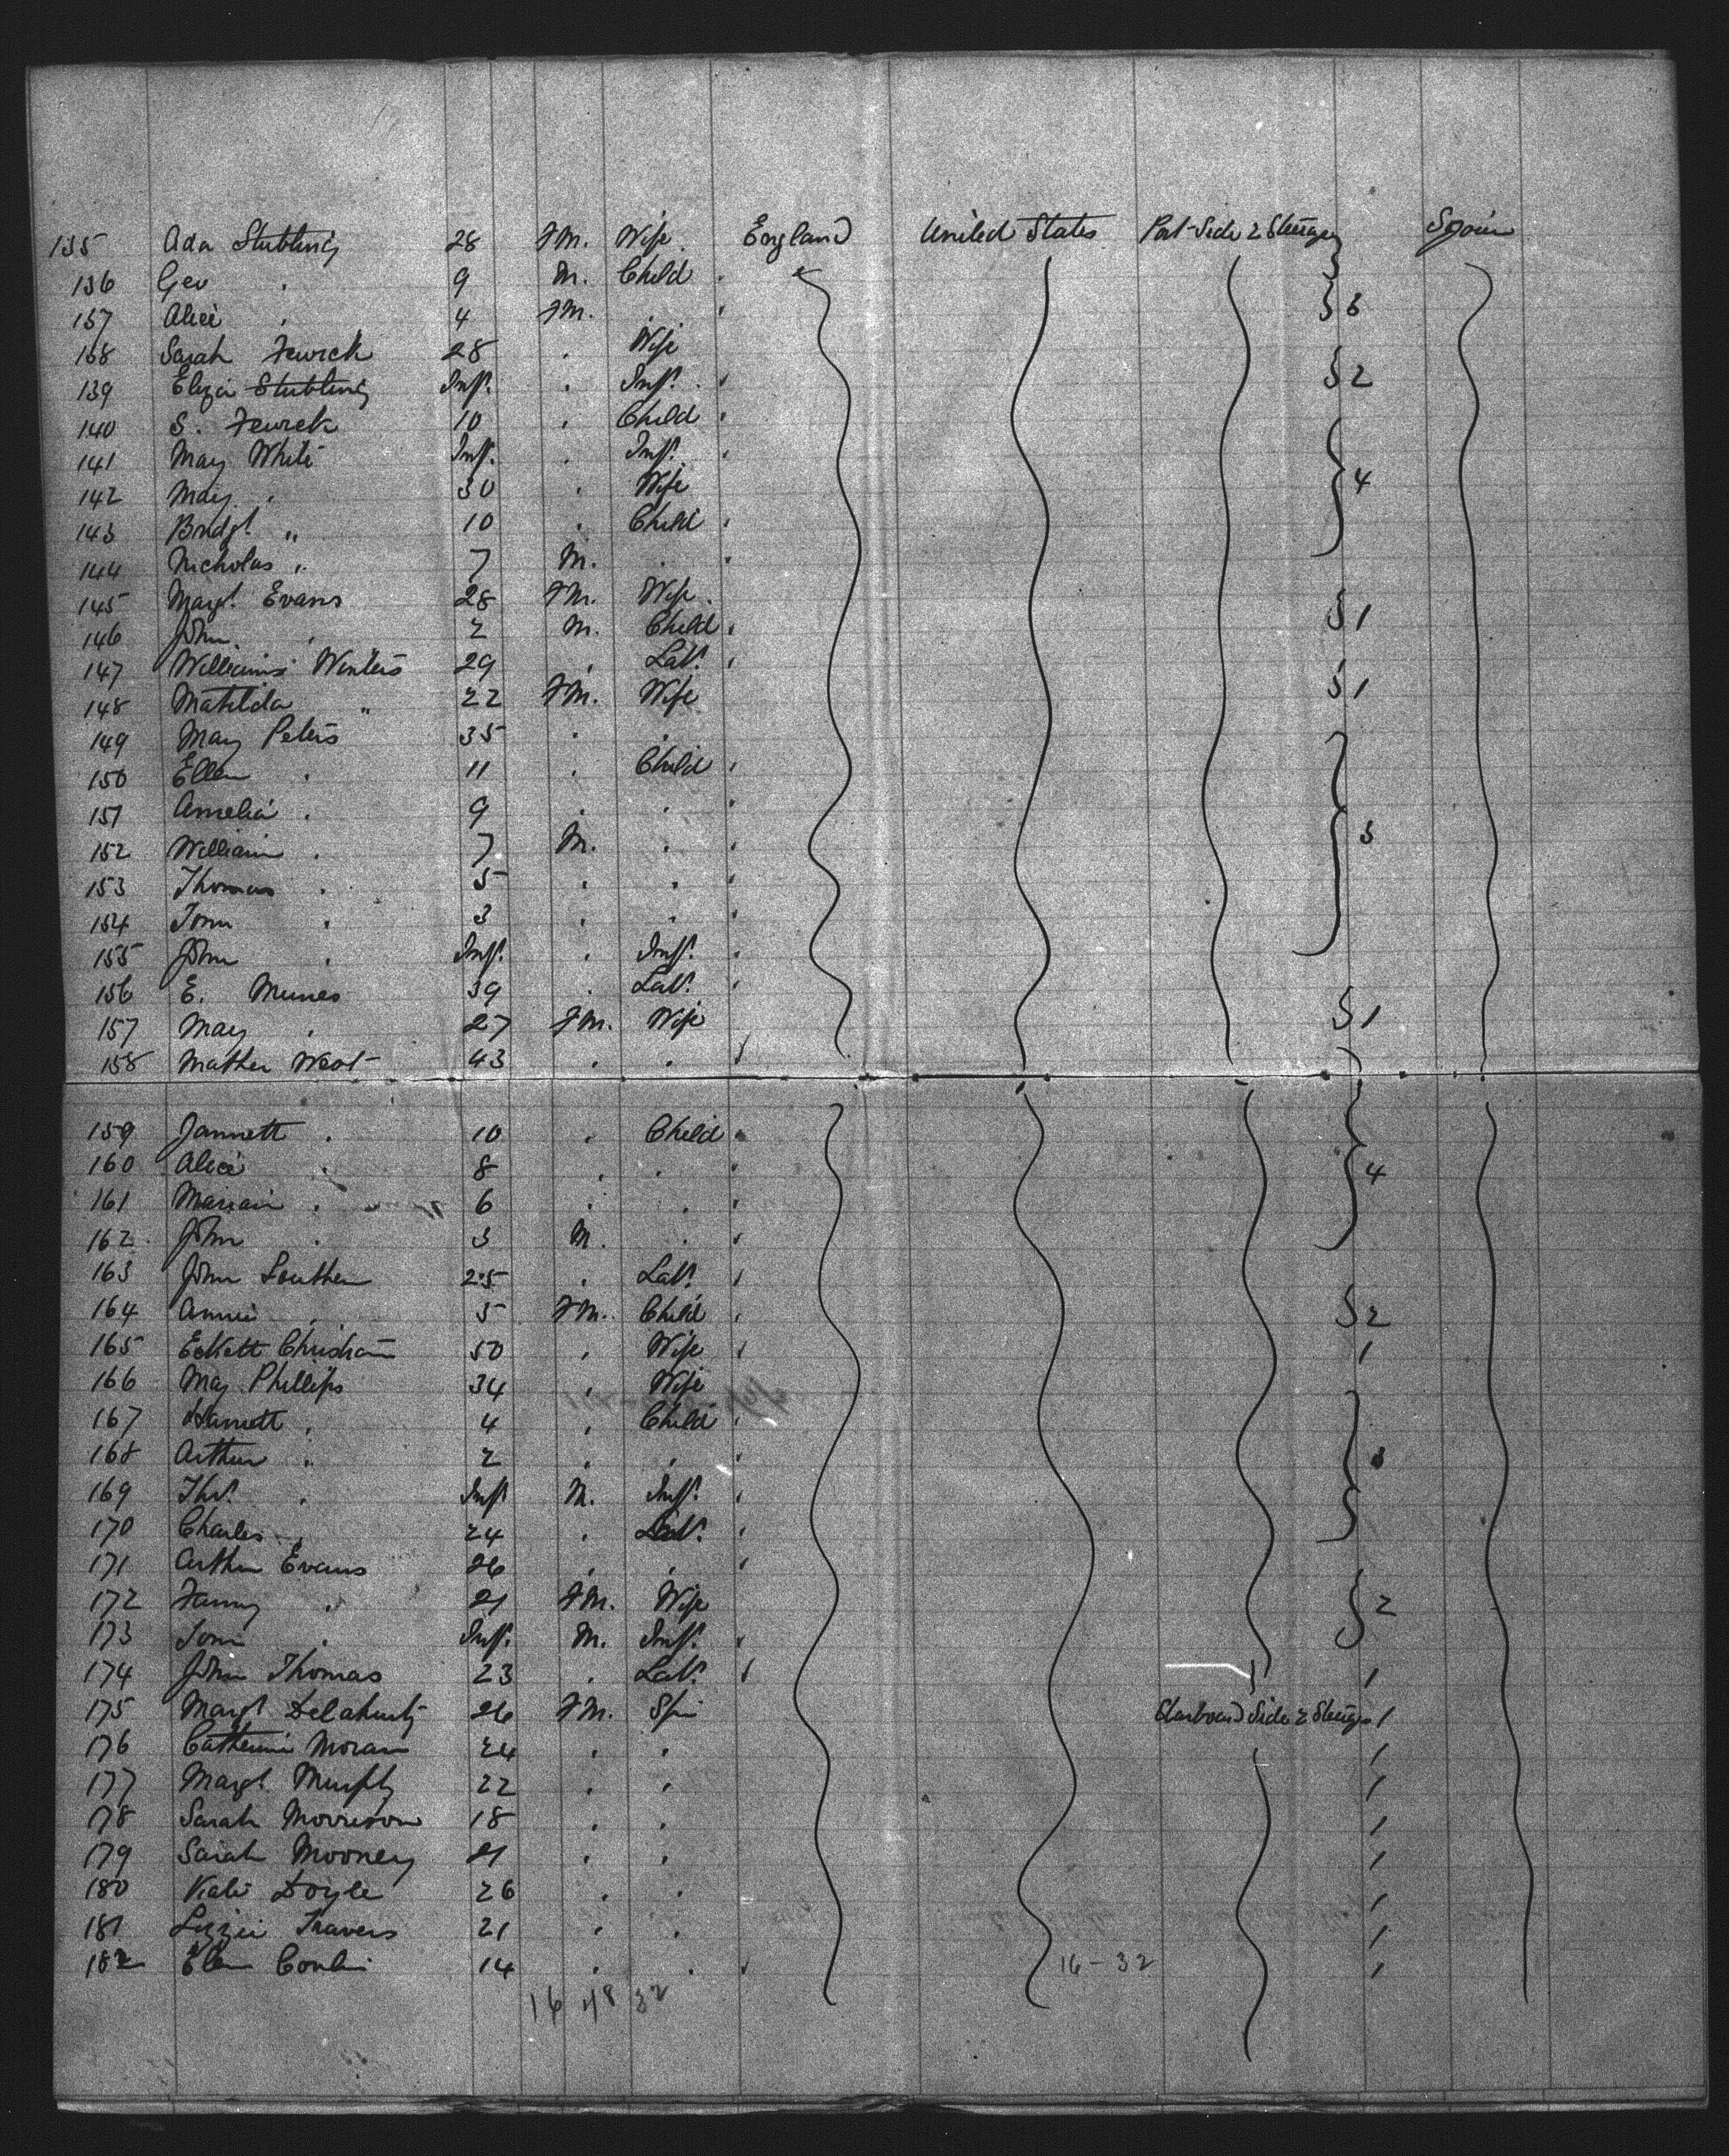 135 Ada Stubbing 28 FM. Wife. England United States Port Side 2 Steerage Spain
136 Geo " 9 M. Child "
137 Alice " 4 FM. " " 3
138 Sarah Fewrck 28 " Wife
139 Eliza Stubbing Inft. " Inft. " 2
140 S. Fewrck 10 " Child "
141 Mary White Inft. " Inft. "
142 Mary " 30 " Wife 4
143 Bridgt " 10 " Child "
144 Nicholas " 7 M. " "
145 Margt. Evans 28 FM. Wife.
146 John " 2 M. Child " 1
147 Williams Winters 29 " Labr. "
148 Matilda " 22 FM. Wife 1
149 Mary Peters 35 " "
150 Ellen " 11 " Child "
151 Amelia " 9 " " "
152 William " 7 M. " " 3
153 Thomas " 5 " " "
154 Tom " 3 " " "
155 John " Inft. " Inft. "
156 E. Munes 39 " Labr. "
157 Mary " 27 FM. Wife 1
158 Mather West 43 " "
159 Jannett " 10 " Child "
160 Alice " 8 " " " 4
161 Mariain " 6 " " "
162 John " 3 M. " "
163 John Southern 25 " Labr. "
164 Annie " 5 FM. Child " 2
165 Christiain 50 " Wife " 1
166 May Phillips 34 " Wife
167 Harriett " 4 " Child "
168 Arthur " 2 " " "
169 Thos. " Inft M. Inft. "
170 Charles " 24 " Labr. "
171 Arthur Evans 26 " " "
172 Fanny " 21 FM. Wife 2
173 Tom " Inft. M. Inft. "
174 John Thomas 23 " Labr. " 1
175 Margt. Delahunty 26 FM. Spin Starboard Side 2 Steerage 1
176 Catherine Moran 24 " " 1
177 Margt. Murphy 22 " " 1
178 Sarah Morrison 18 " " 1
179 Sarah Mooney 21 " " 1
180 Kate Doyle 26 " " 1
181 Lizzie Travers 21 " " 1
182 Ellen Conlin 14 " " " 16-32 1
16 48 32